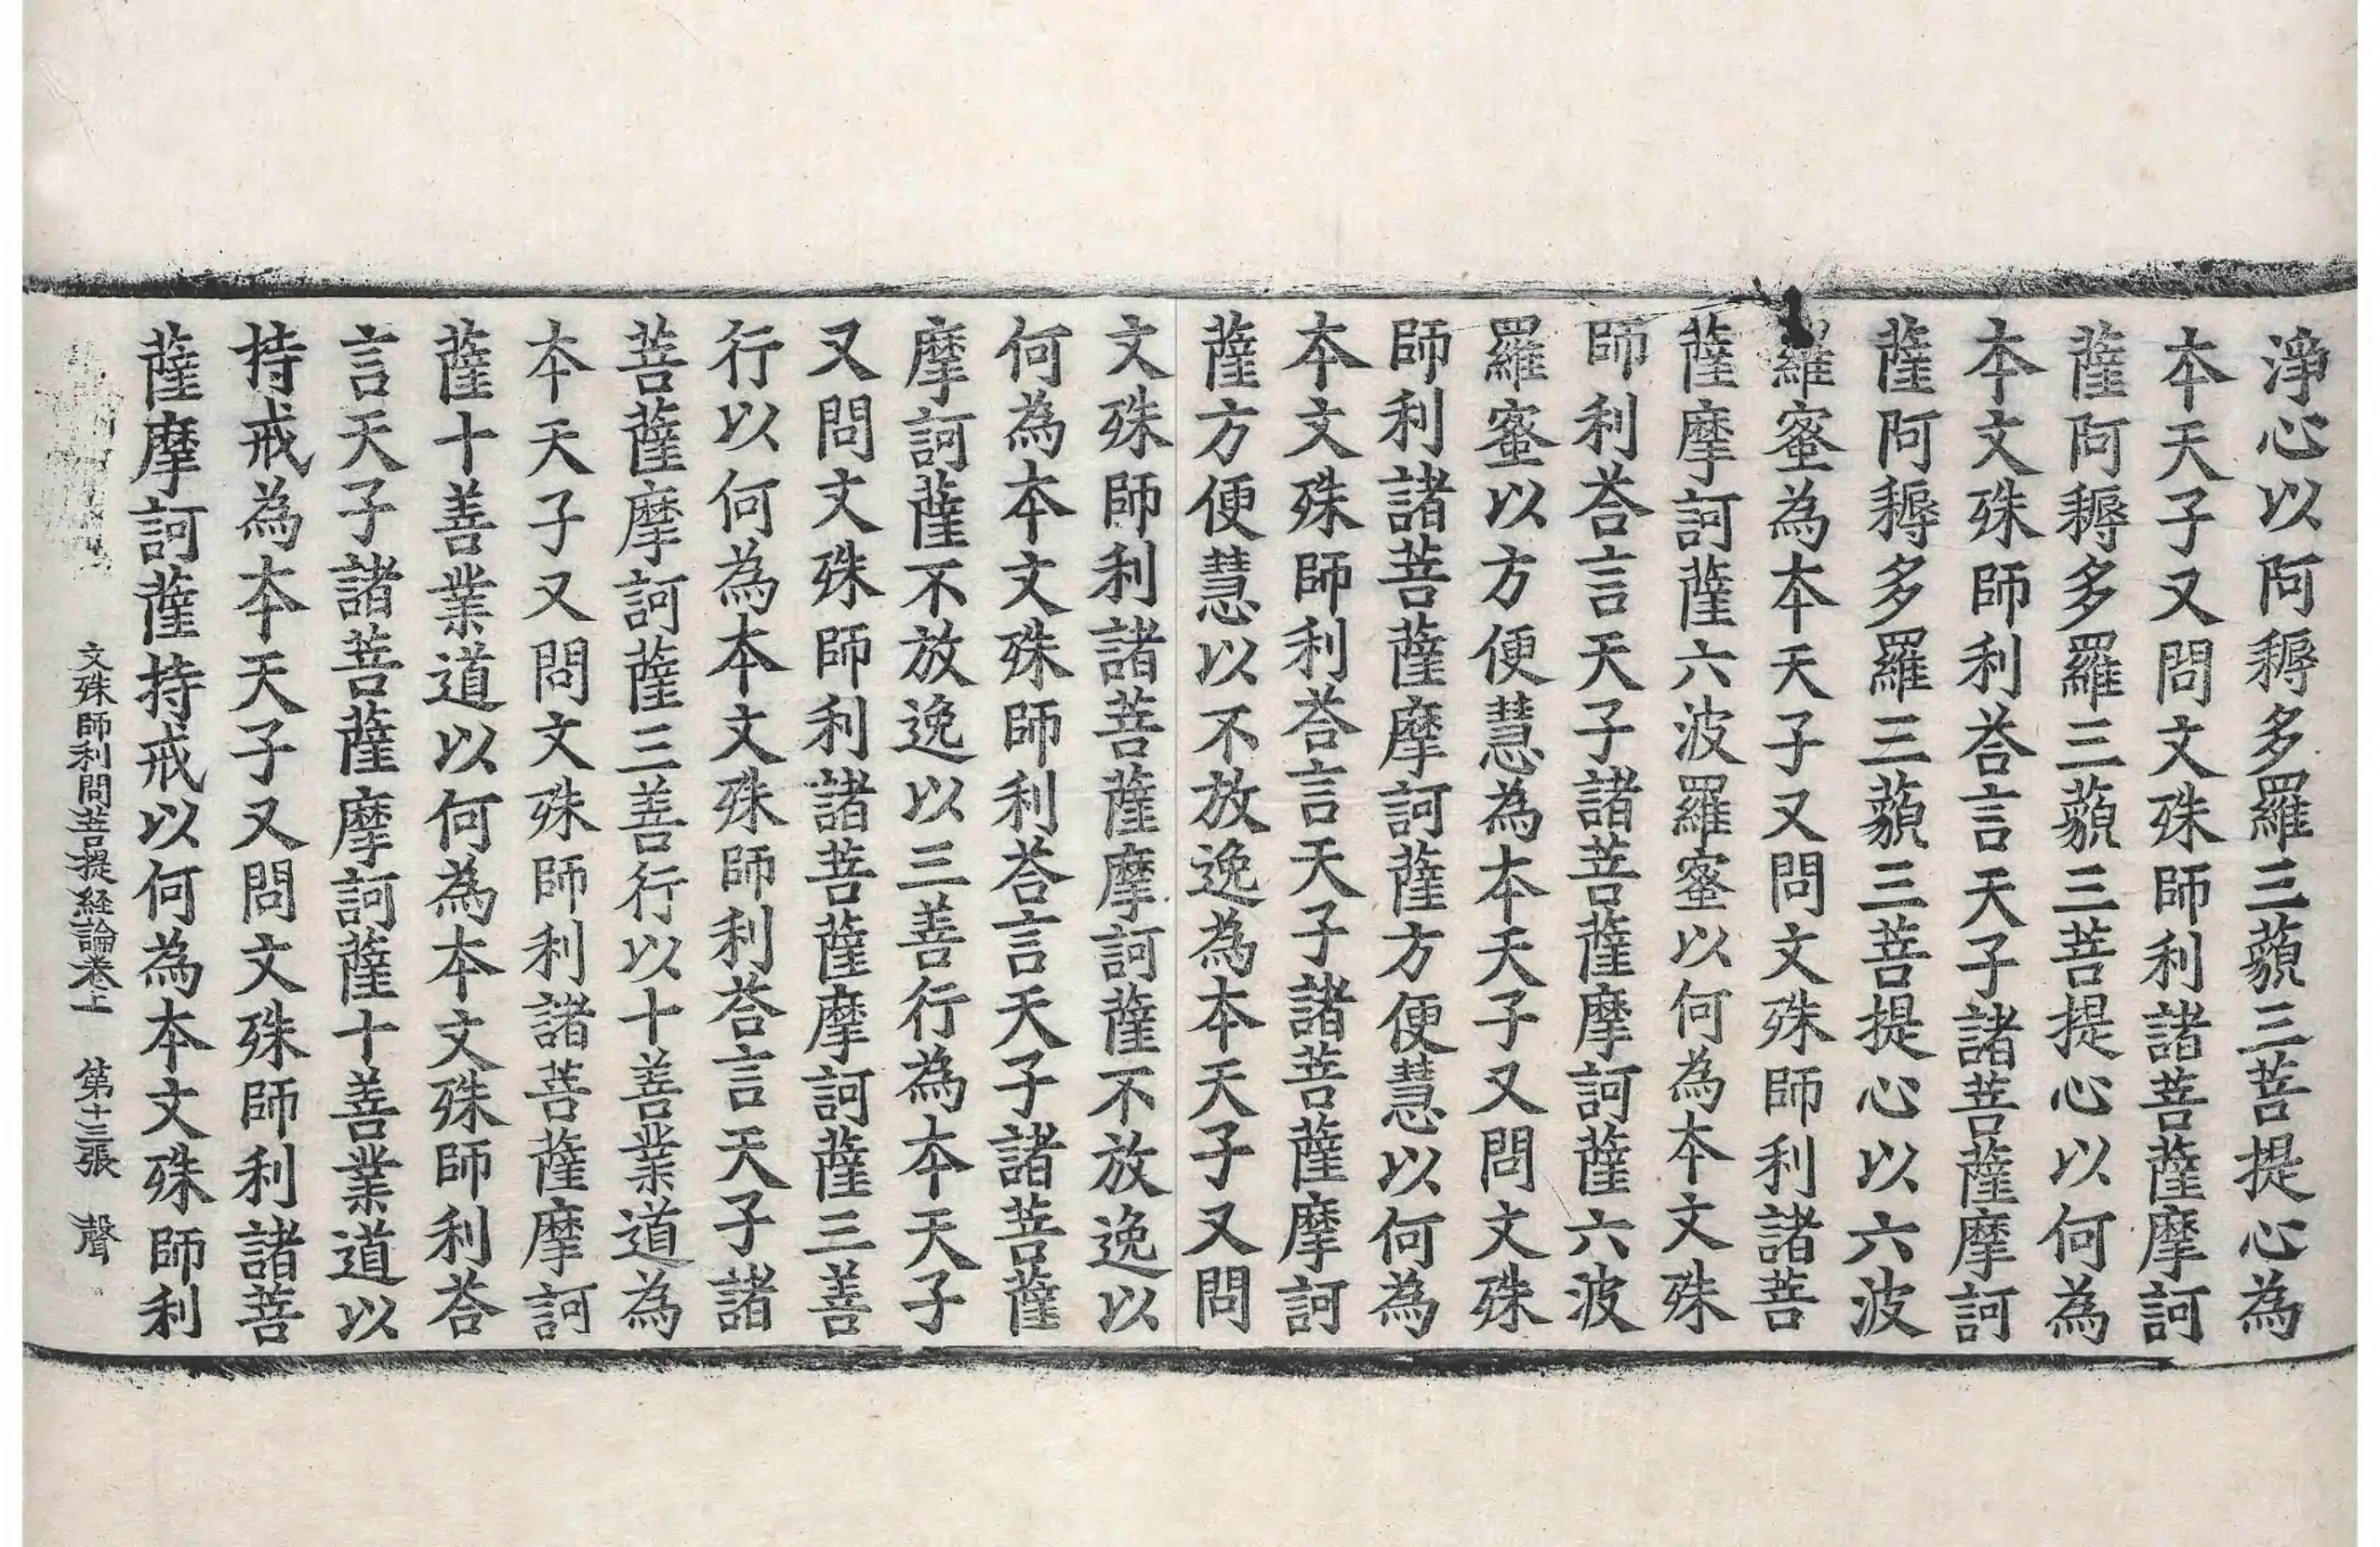 淨心以阿耨多羅三藐三菩提心為
本天子又問文殊師利諸菩薩摩訶
薩阿耨多羅三藐三菩提心以何為
本文殊師利荅言天子諸菩薩摩訶
薩阿耨多羅三藐三菩提心以六波
羅蜜為本天子又問文殊師利諸菩
薩摩訶薩六波羅蜜以何為本文殊
師利荅言天子諸菩薩摩訶薩六波
羅蜜以方便慧為本天子又問文殊
師利諸菩薩摩訶薩方便慧以何為
本文殊師利荅言天子諸菩薩摩訶
薩方便慧以不放逸為本天子又問
文殊師利諸菩薩摩訶薩不放逸以
何為本文殊師利荅言天子諸菩薩
摩訶薩不放逸以三善行為本天子
又問文殊師利諸菩薩摩訶薩三善
行以何為本文殊師利荅言天子諸
菩薩摩訶薩三善行以十善業道為
本天子又問文殊師利諸菩薩摩訶
薩十善業道以何為本文殊師利荅
言天子諸菩薩摩訶薩十善業道以
持戒為本天子又問文殊師利諸菩
薩摩訶薩持戒以何為本文殊師利
文殊師利問菩提経論卷上 第十三張 聲